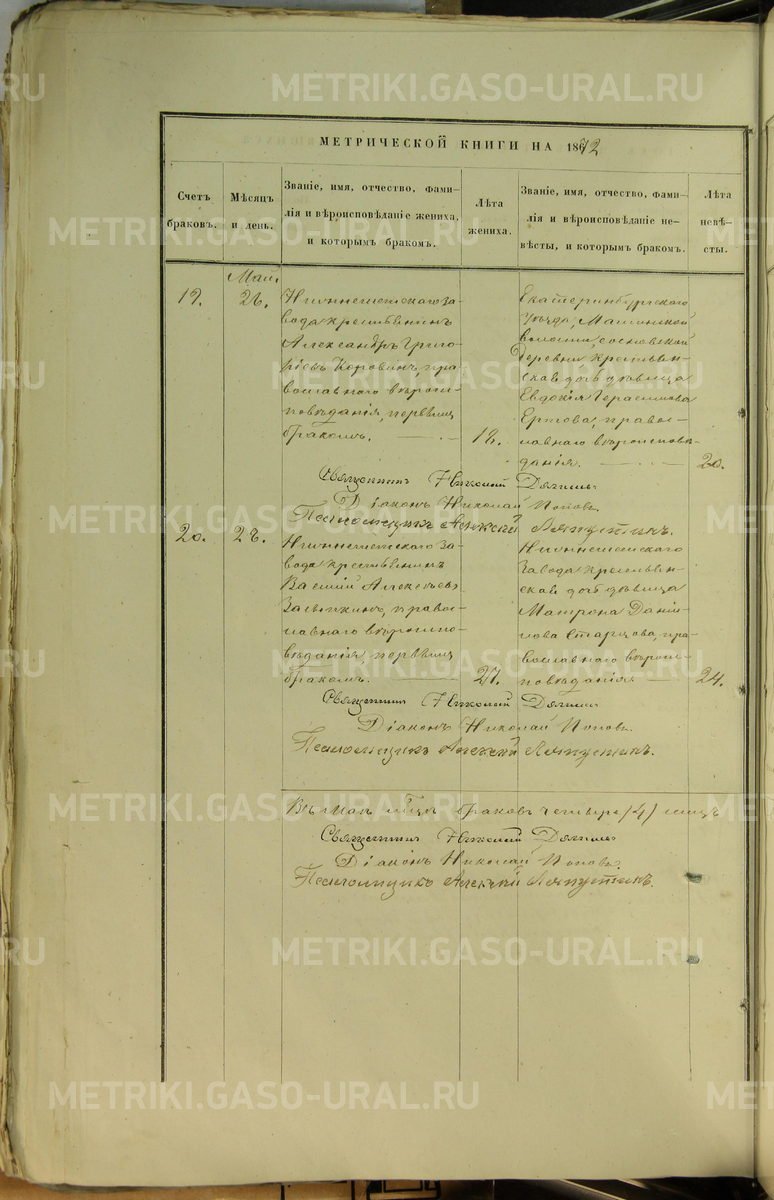 МЕТРИЧЕСКОЙ КНИГИ НА 18
Счетъ браковъ.
Мѣсяцъ и день.
Званіе, имя, отчество, фами-
лія и вѣроисповѣданіе жениха,
и которымъ бракомъ.
Лѣта жениха.
Званіе, имя, отчество, фами-
лія и вѣроисповѣданіе не-
вѣсты, и которымъ бракомъ.
Лѣта невѣ-
сты.
Май.
19.
26.
за-
вода крестьянинъ
Александръ Григо-
ріевъ Коровинъ, пра-
вославнаго вѣроис-
повѣданія, первымъ
бракомъ.
Екатеринбургскаго
Уѣзда,
волости, сосновской
деревни крестьян-
ская дочь дѣвица
Евдокія Герасимова
право-
славнаго вѣроисповѣ-
данія.
20.
Священникъ Николай
Діаконъ Николай Поповъ.
Псаломщикъ Алексѣй Ляпустинъ.
20.
за-
вода крестьянинъ
Василій Алексѣевъ
право-
славнаго вѣроиспо-
вѣданія, первымъ
бракомъ.
27.
завода крестьян-
ская дочь дѣвица
Матрона Дані-
лова Старцова, пра-
вославнаго вѣроис-
повѣданія
24.
Священникъ Николай
Діаконъ Николай Поповъ.
Псаломщикъ Алексѣй Ляпустинъ.
Въ маѣ браковъ четыре (4)
Священникъ Николай
Діаконъ Николай Поповъ.
Псаломщикъ Алексѣй Ляпустинъ.
METRIKI.GASO-URAL.RU